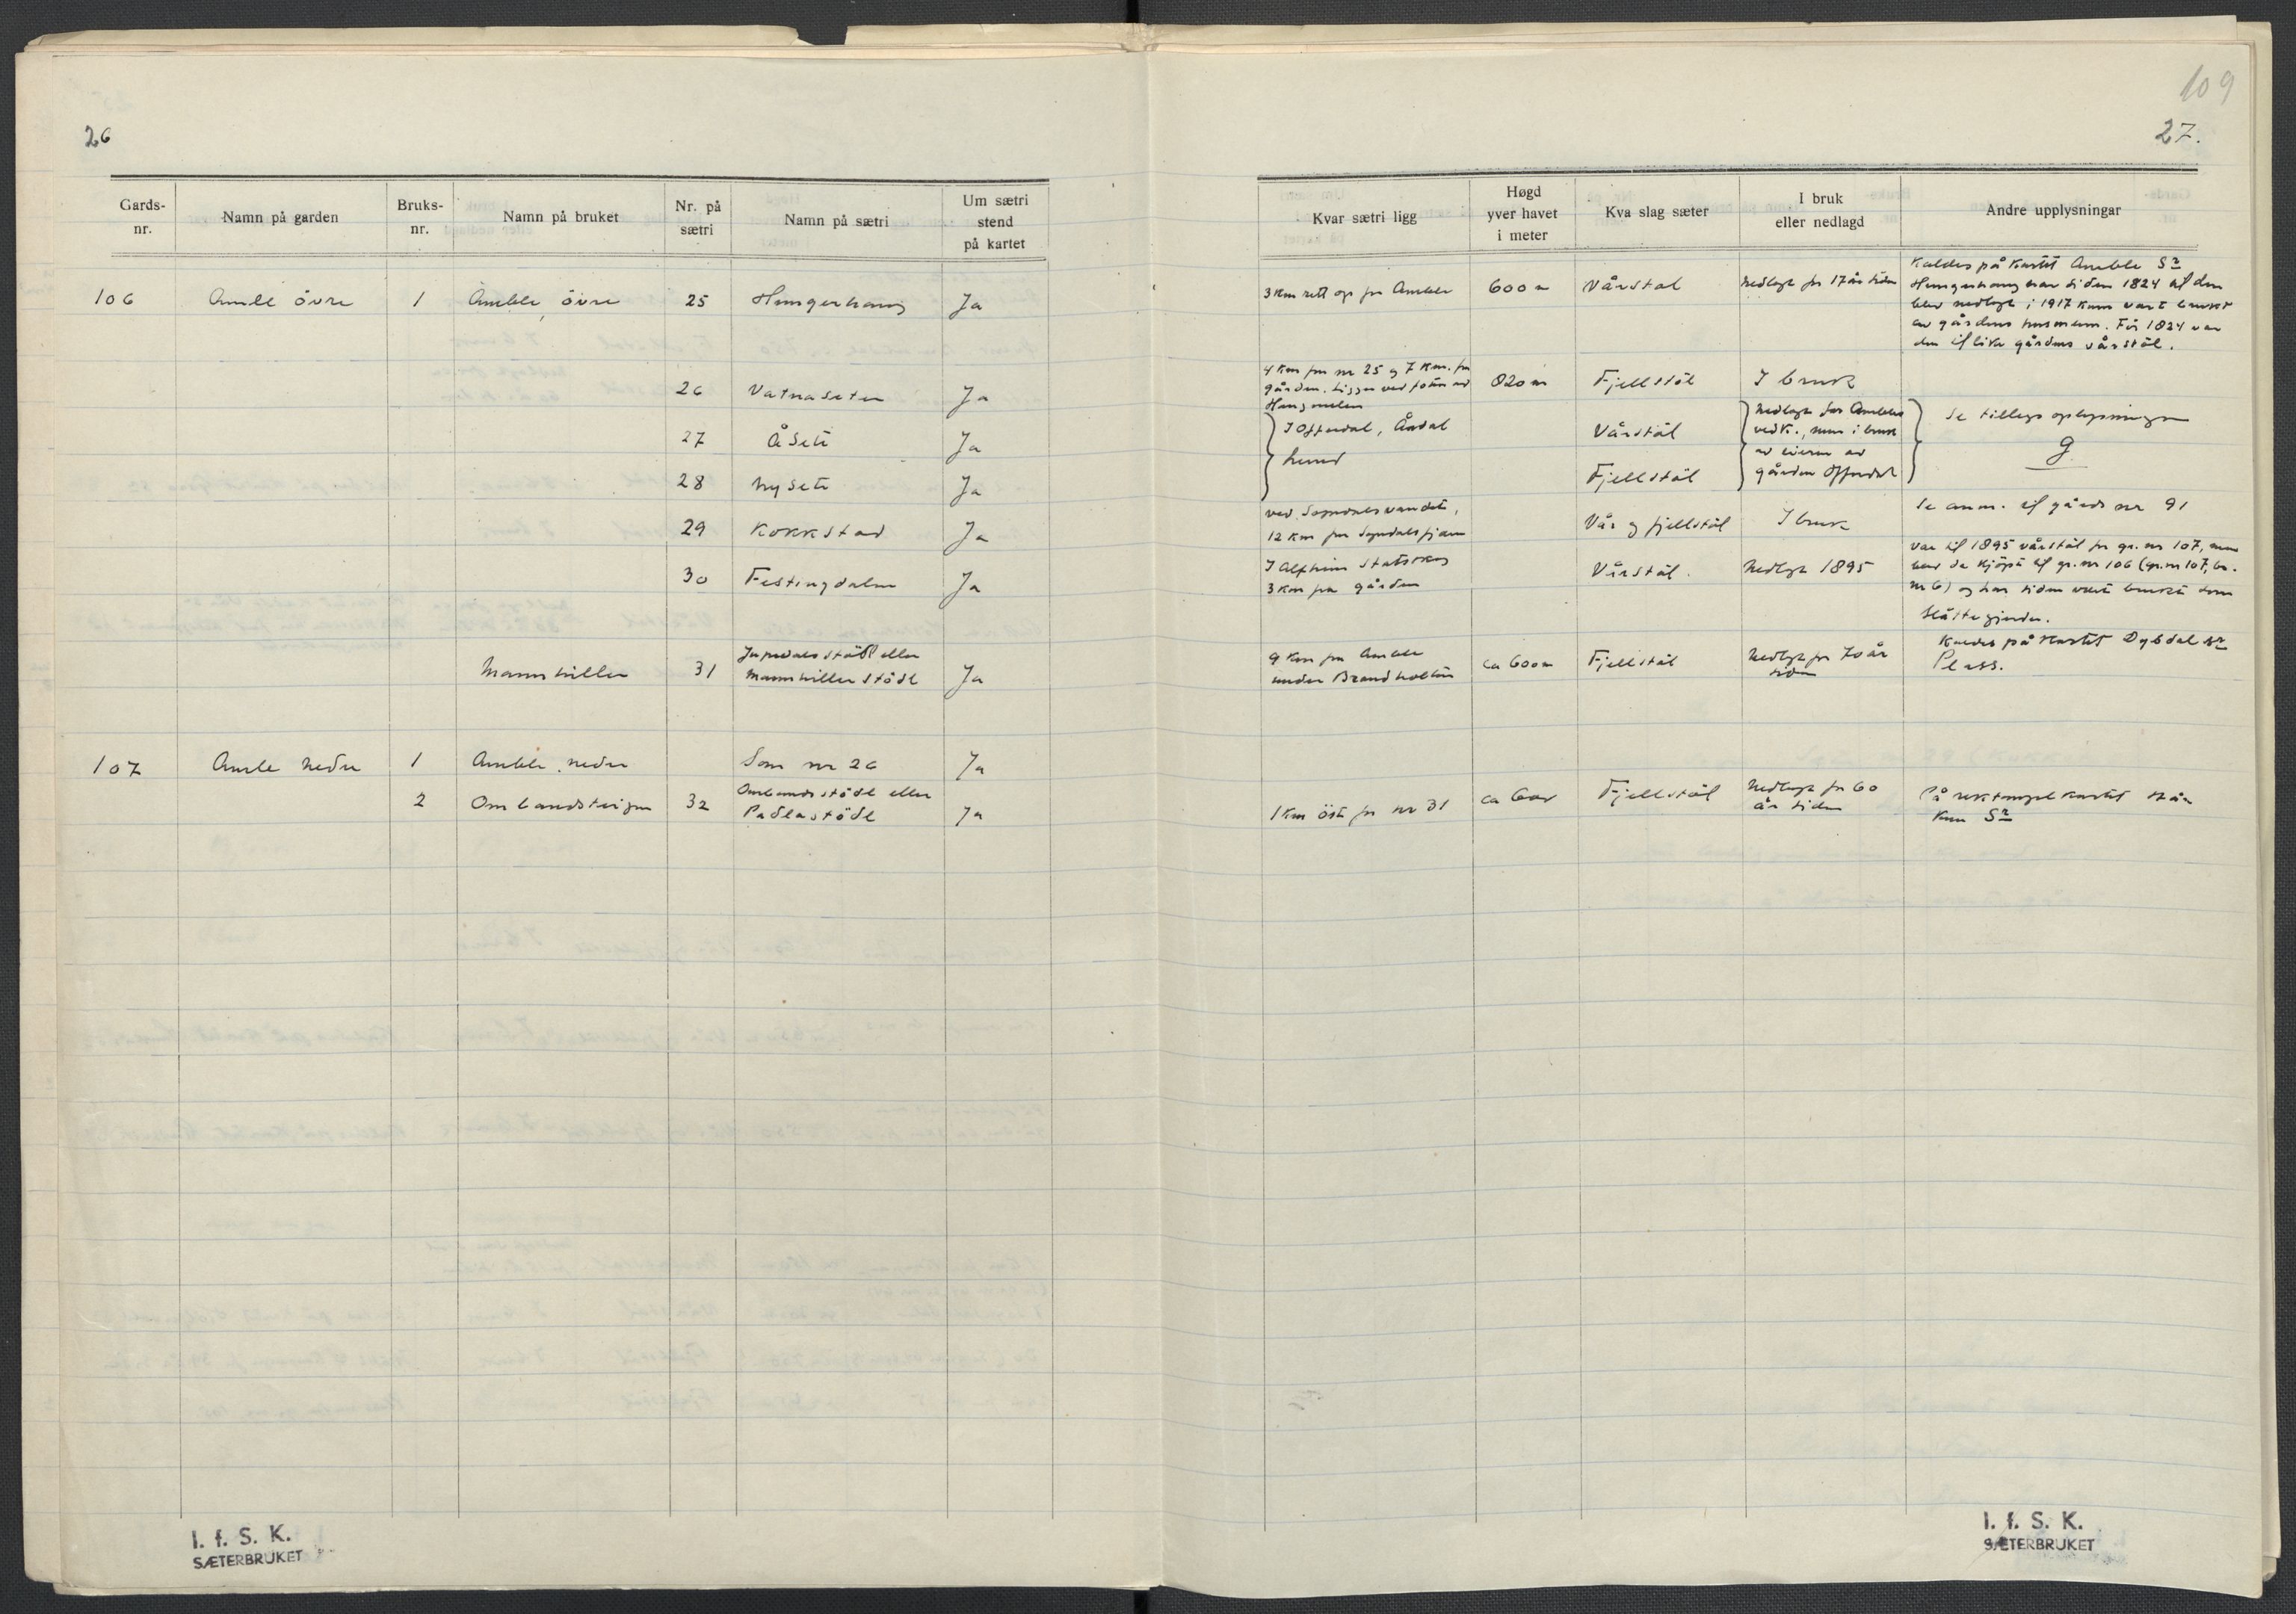 26
Gards-nr. Namn på garden Bruks-nr. Namn på bruket Nr. på sætri Namn på sætri Um sætri stend på kartet
106 Amle övre 1 Amble övre 25 Hungerhaug Ja
26 Vatnasete Ja
27 Åsete Ja
28 Nysete Ja
29 Kokkstad Ja
30 Festingdalen Ja
Mannhiller 31 stödl eller
Mannhiller stödl Ja
107 Amle nedre 1 Amble nedre Som nr 26 Ja
2 Ombandsteigen 32 Ombandsstödl eller
Padlastödl Ja
I. f. S. K.
SÆTERBRUKET
109
27.
Kvar sætri ligg Høgd yver havet i meter Kva slag sæter I bruk eller nedlagd Andre upplysningar
3 km rett op fr Amble 600 m Vårstøl Nedlagt for 17 år siden Kaldes på kartet Amble Sr
Hungerhaug har siden 1824 til den
blev nedlagt i 1917 kun vært brukt
av gårdens husmenn. För 1824 var
den tillike gårdens vårstöl.
4 km fra nr 25 og 7 km. fra
gården. Ligger ved foten av 820 m Fjellstöl I bruk
} I Offerdal, Årdal
herred
Vårstöl } Nedlagt for Ambles
vedk., men i bruk
av eieren av
gården Offerdal } Se tillegsoplysninger
g
Fjellstöl
ved Sogndalsvandet,
12 km fra Sogndalsfjøra Vår og fjellstöl I bruk Se anm. til gårds nr 91
I Alfheim Statsskog
3 km fra gården Vårstöl. Nedlagt 1895 Var til 1895 vårstöl for gr. nr 107, men
blev da kjöpt til gr. nr 106 (gr. nr 107, br.
nr 6) og har siden vært brukt som
slåtte
9 km fra Amble
under Brandholten ca 600 m Fjellstöl Nedlagt for 70 år
siden Kaldes på kartet Dybdal Sr
Plass.
1 km öst for nr 31 ca 600 Fjellstöl Nedlagt for 60
år siden På rektangelkartet står
kun Sr
I. f. S. K.
SÆTERBRUKET